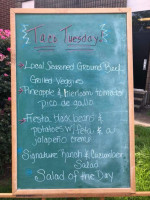 Taco Tuesday!
Local Seasoned Ground Beef
Grilled Veggies
Pineapple & Heirloom tomato
pico de gallo
Fiesta Black beans &
potatoes w/ feta & a
jalapeño creme
Signature Ranch & Cucumber
Salad
Salad of the Day